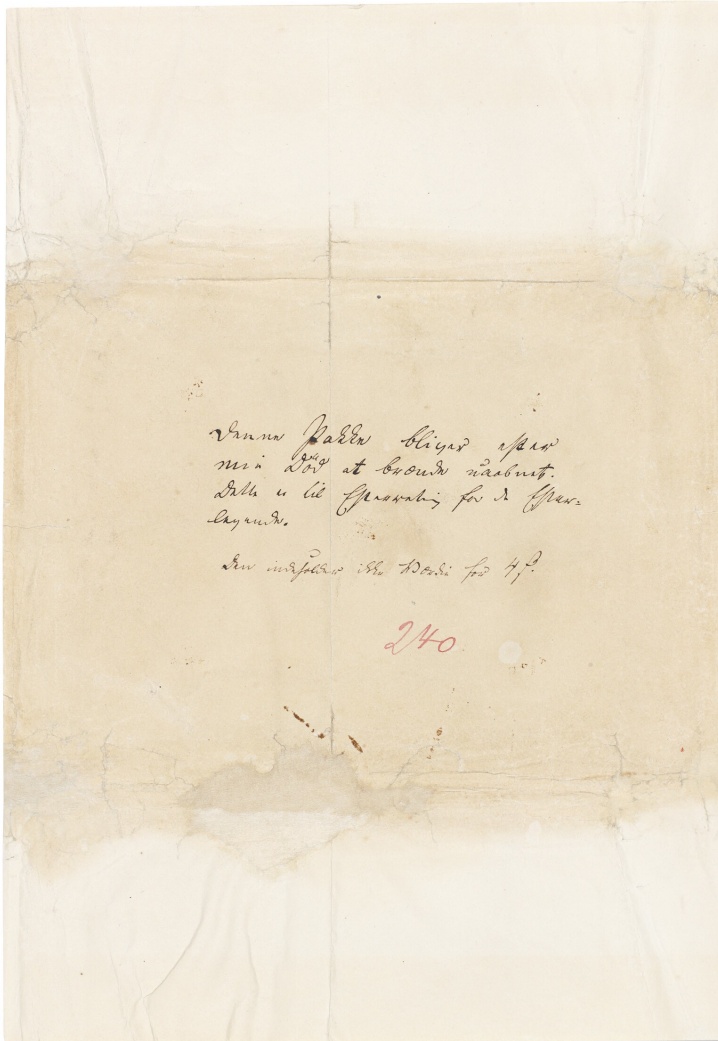 Denne Pakke bliver efter
min Död at brænde uaabnet.
Dette er til Efterretning for de Efter-
levende.
Den indeholder ikke Værdie for 4 ß.
240